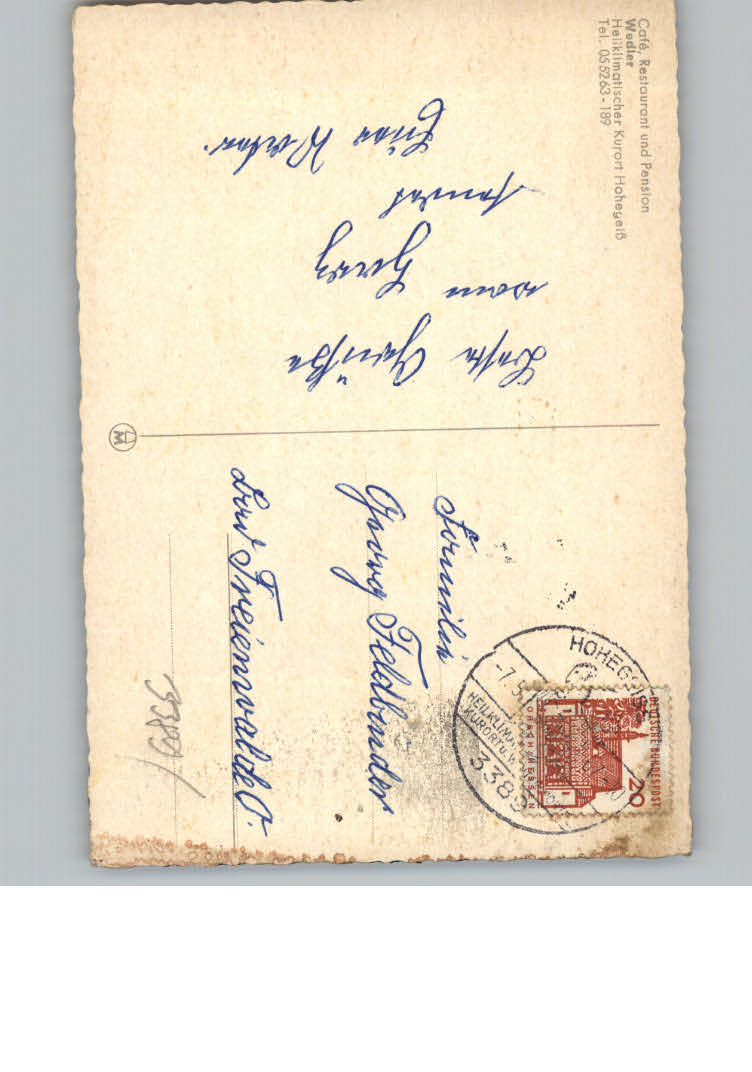 Café, Restaurant und Pension
Wedler
Heilklimatischer Kurort Hohegeiß
Tel. 055263-189
Beste Grüße
vom Harz
sendet
Eure
Familie
Georg Feldbender
Bad Freienwalde O.
HOHEGEISS
-7.5.
HEILKLIMA
KURORT
338
DEUTSCHE BUNDESPOST
20
LORSCH/HESSEN
M